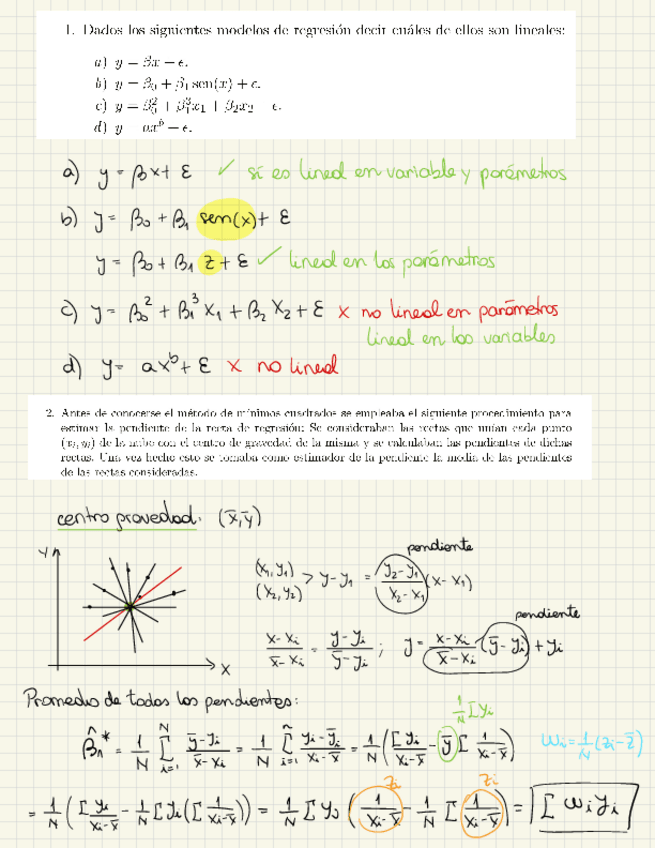 1. Dados los siguientes modelos de regresión decir cuáles de ellos son lineales:
a) y = βx + ϵ.
b) y = β₀ + β₁ sen(x) + ϵ.
c) y = β₀² + β₁³x₁ + β₂x₂ + ϵ.
d) y = axᵇ + ϵ.
a) y = βx + ε ✓ sí es lineal en variable y parámetros
b) y = β₀ + β₁ sen(x) + ε
y = β₀ + β₁ z + ε ✓ lineal en los parámetros
c) y = β₀² + β₁³ x₁ + β₂ x₂ + ε x no lineal en parámetros
lineal en las variables
d) y = axᵇ + ε x no lineal
2. Antes de conocerse el método de mínimos cuadrados se empleaba el siguiente procedimiento para
estimar la pendiente de la recta de regresión: Se consideraban las rectas que unían cada punto
(xᵢ, yᵢ) de la nube con el centro de gravedad de la misma y se calculaban las pendientes de dichas
rectas. Una vez hecho esto se tomaba como estimador de la pendiente la media de las pendientes
de las rectas consideradas.
centro gravedad: (x̄,ȳ)
pendiente
y
(x₁,y₁)
(x₂,y₂) > y-y₁ = (y₂-y₁)/(x₂-x₁) (x-x₁)
pendiente
(x-xᵢ)/(x̄-xᵢ) = (y-yᵢ)/(ȳ-yᵢ) ; y = (x-xᵢ)/(x̄-xᵢ) (ȳ-yᵢ) + yᵢ
x
Promedio de todas las pendientes:
1/N Σyᵢ
β̂₁* = 1/N Σᵢ₌₁ᴺ (ȳ-yᵢ)/(x̄-xᵢ) = 1/N Σᵢ₌₁ⁿ (yᵢ-ȳᵢ)/(xᵢ-x̄) = 1/N (Σ yᵢ/(xᵢ-x̄) - ȳ Σ 1/(xᵢ-x̄)) ωᵢ = 1/N (zᵢ-z̄)
zᵢ zᵢ
= 1/N (Σ yᵢ/(xᵢ-x̄) - 1/N Σ yᵢ (Σ 1/(xᵢ-x̄))) = 1/N Σ yᵢ (1/(xᵢ-x̄) - 1/N Σ 1/(xᵢ-x̄)) = Σ ωᵢ yᵢ